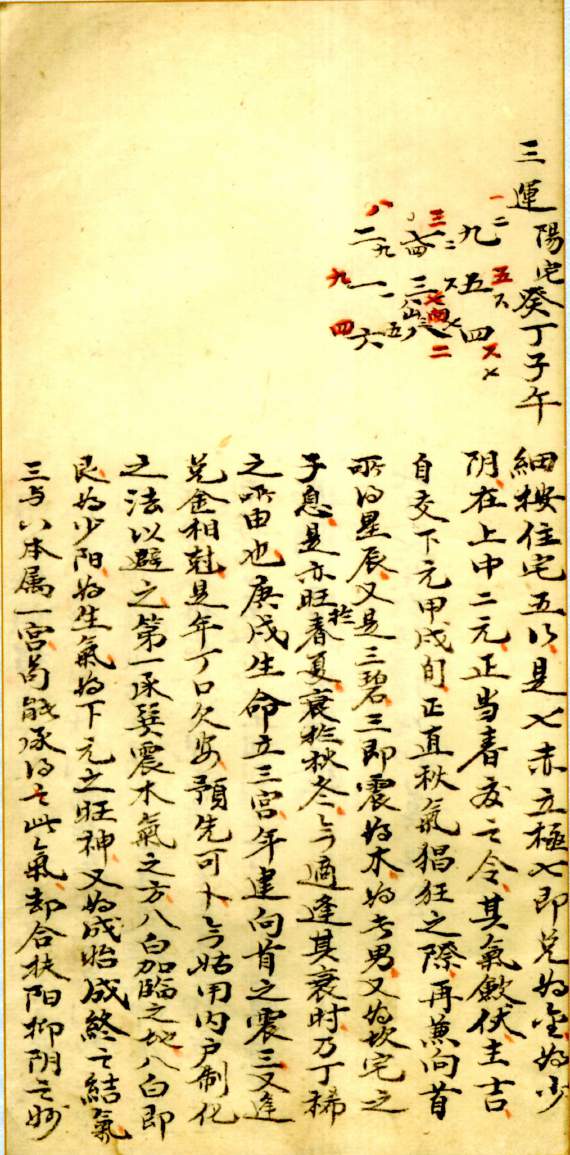 三運陽宅癸丁子午
一二 九
三 七四 二
八 二九
五 五
三
九 一一
六七 四
二 八
四 六五
細按住宅五次是七赤立極七即兑为金为少
阴在上中二元正当春夜之令其氣歛伏主吉
自交下元甲戌旬正直秋氣猖狂之際再兼向首
所泊星辰又是三碧三即震为木为长男又为坎宅之
子息是亦旺於春夏衰於秋冬今適逢其衰时乃丁稀
之所由也庚戌生命立三宫年建向首之震三又逢
兑金相尅是年丁口欠安預先可卜今姑用内户制化
之法以避之第一承巽震木氣之方八白加臨之地八白即
艮为少阳为生氣为下元之旺神又为成始成終之結氣
三与八本属一宫苟能承泊之此氣却合扶阳抑阴之妙